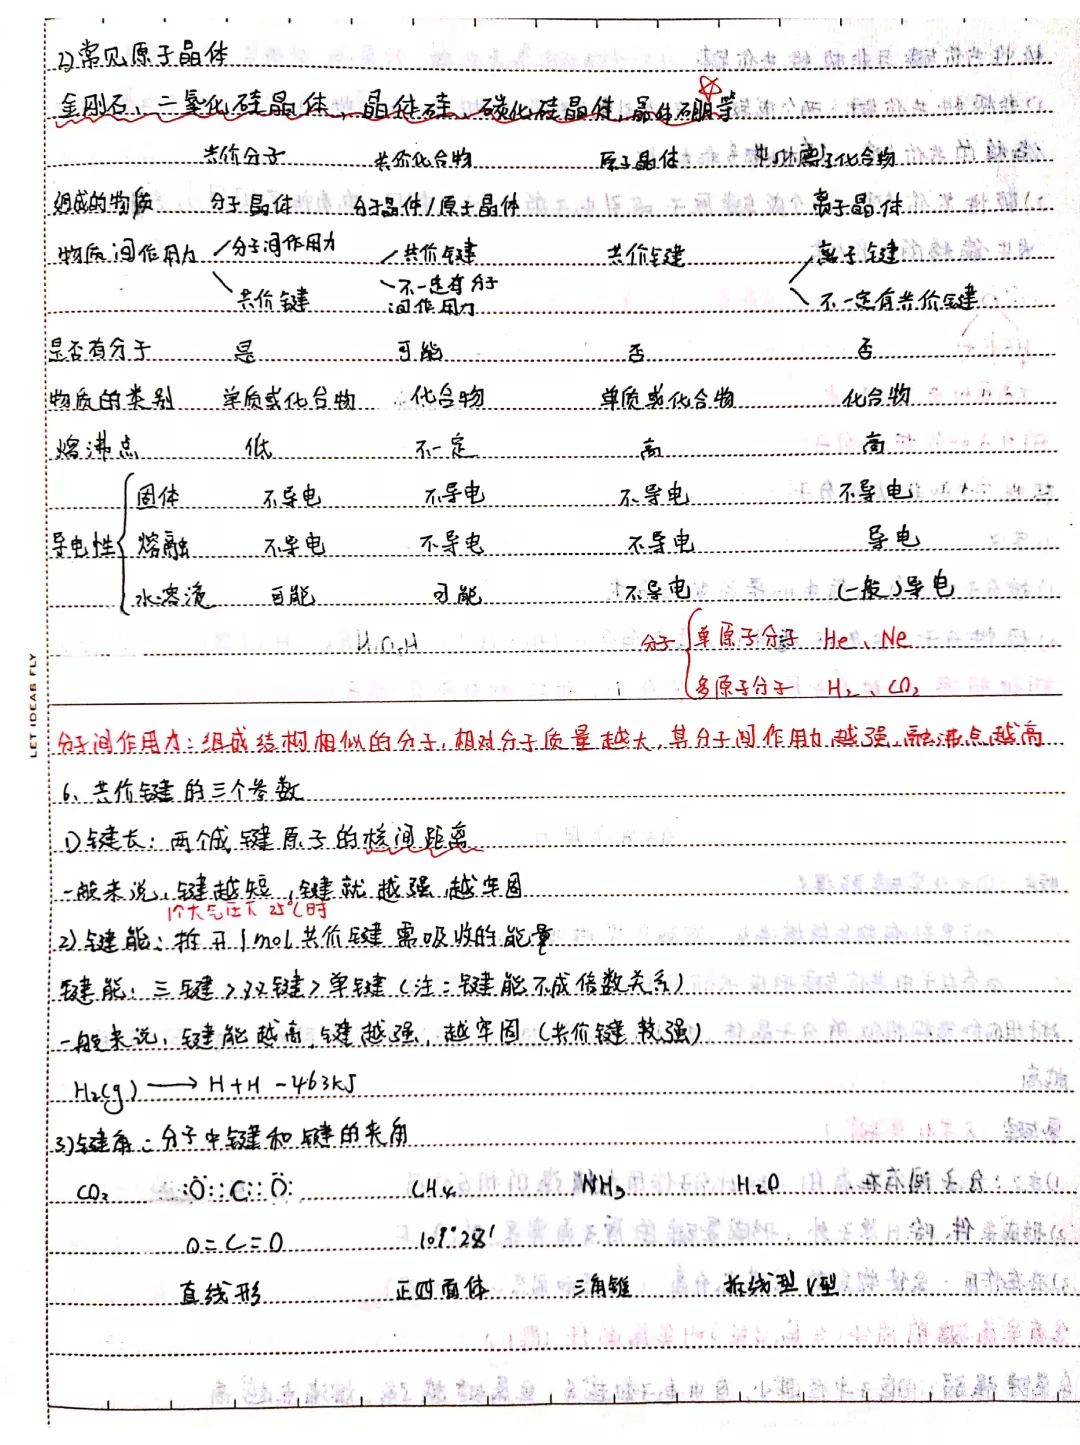 2)常见原子晶体
金刚石、二氧化硅晶体、晶体硅、碳化硅晶体,晶体硼等
共价分子 共价化合物 原子晶体 离子化合物
组成的物质 分子晶体 分子晶体/原子晶体 离子晶体
物质间作用力 分子间作用力 共价键 共价键 离子键
共价键 不一定有分子间作用力 不一定有共价键
是否有分子 是 可能 否 否
物质的类别 单质或化合物 化合物 单质或化合物 化合物
熔沸点 低 不一定 高 高
固体 不导电 不导电 不导电 不导电
导电性 熔融 不导电 不导电 不导电 导电
水溶液 可能 可能 不导电 (一般)导电
分子 单原子分子 He、Ne
多原子分子 H₂、CO₂
LET IDEAS FLY
分子间作用力:组成结构相似的分子,相对分子质量越大,其分子间作用力越强,融沸点越高
6、共价键的三个参数
1)键长:两个成键原子的核间距离
一般来说,键越短,键就越强,越牢固
1个大气压下 25℃时
2)键能:拆开1mol共价键需吸收的能量
键能:三键>双键>单键(注:键能不成倍数关系)
一般来说,键能越高,键越强,越牢固(共价键较强)
H₂(g)→H+H-463kJ
3)键角:分子中键和键的夹角
CO₂ :Ö::C::Ö: CH₄ NH₃ H₂O
O=C=O 109°28′
直线形 正四面体 三角锥 折线型 V型